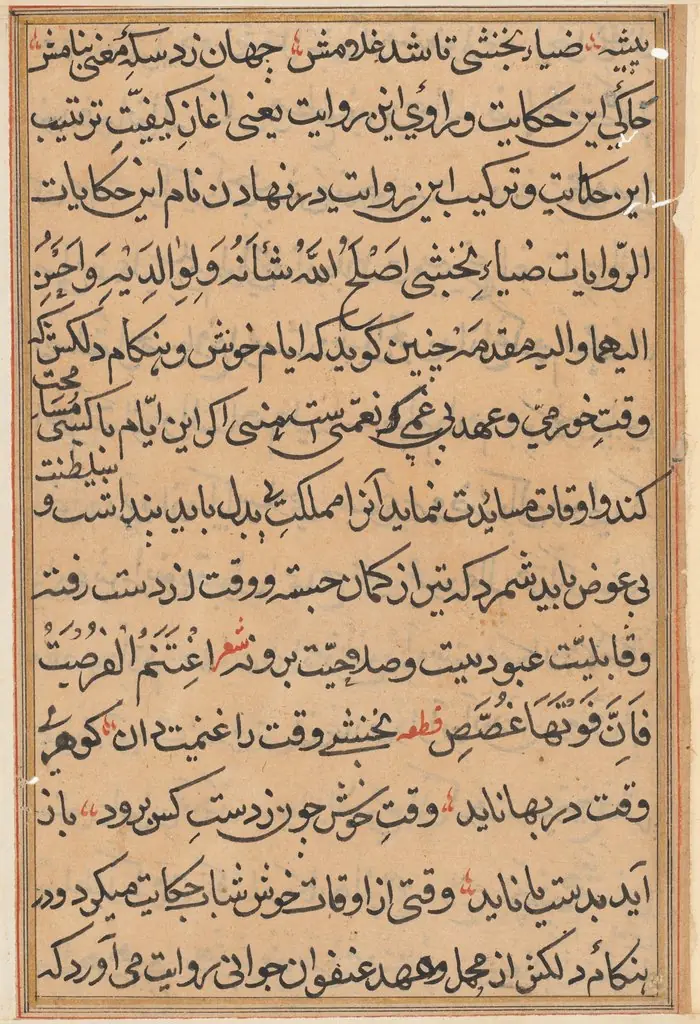 پیشه ضیاء نخشبی تا شد غلامش جهان زد سکهٔ معنی بنامش
حاکیٔ این حکایت و راویٔ این روایت یعنی اغاز کیفیّتِ ترتیب
این حکایت و ترکیب این روایت در نهادن نام این حکایات
الرّوایات ضیاءِ نخشبی اَصْلَحَ اللّٰهُ شَأنَهُ وَلِوٰالِدَیْهِ وَاَحْسَنُ
الیهما والیه مقدمه چنین کوید که ایام خوش و هنکام دلکش که
وقتِ خورمی و عهد بی غمی نعمتی ست اکر این ایّام با کسی مسا محت
کند و اوقات مساعدت نماید آنرا مملکتِ بی بدل باید پنداشت و سلطنت
بی عوض باید شمرد که تیر از کمان جسته و وقت از دست رفته
و قابلیّت عبودیت و صلاحیّت برونه شعر اِغْتَنَمُ الْفُرْصَتُ
فَاِنَّ فَوْتَهَا غُصَّصِ قطعه نخشبے وقت را غنیمت دان کوهرے
وقت در بها ناید وقتِ خوش چون ز دستِ کس برود باز
آید بدست یا ناید وقتی از اوقات خوش شباب حکایت میکرد و در
هنکام دلکش از مجمل و عهد عنفوان جوانی روایت می آورد که